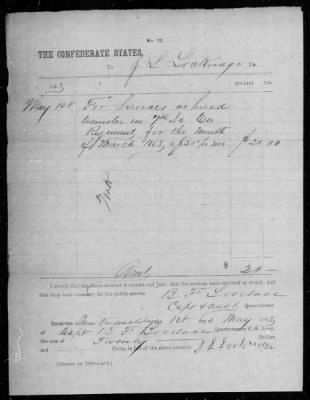 No. 12.
THE CONFEDERATE STATES,
To J L Locknago Dr.
1863 DOLLARS. CTS.
May 1st For Services as hired
teamster in 7th So Ca
Regiment, for the month
of March 1863, @ 20 per mo. $ 20 00
Amt. $ 20
I certify that the above account is correct and just; that the services were rendered as stated; and
that they were necessary for the public service.
B F Lovelace
Capt & asst. Quartermaster.
Received Near Fredericksburg 1st of May 1863,
of Capt B F Lovelace Quartermaster C. S. Army,
the sum of Twenty Dollars
and Cents, in full of the above account.
(SIGNED IN DUPLICATE.) J L